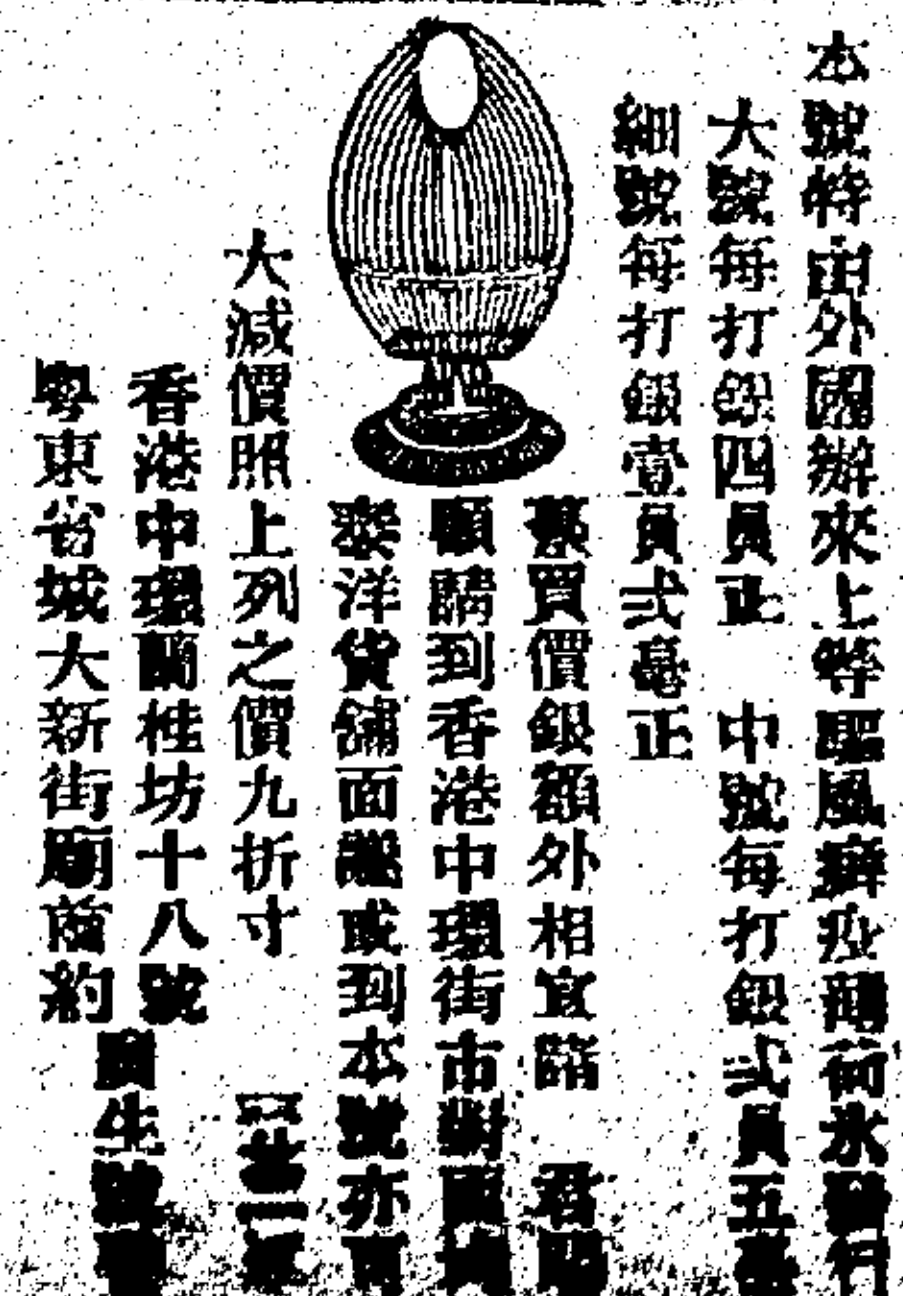 本號特由外國辦來上等驅風癬疫薄荷冰發行
大號每打銀四員正 中號每打銀弍員五毫
細號每打銀壹員弍毫正
買價銀額外相宜諸 君
顧請到香港中環街市對面
泰洋貨舖面議或到本號亦可
大減價照上列之價九折寸
香港中環蘭桂坊十八號
粵東省城大新街廟前約
廣生號